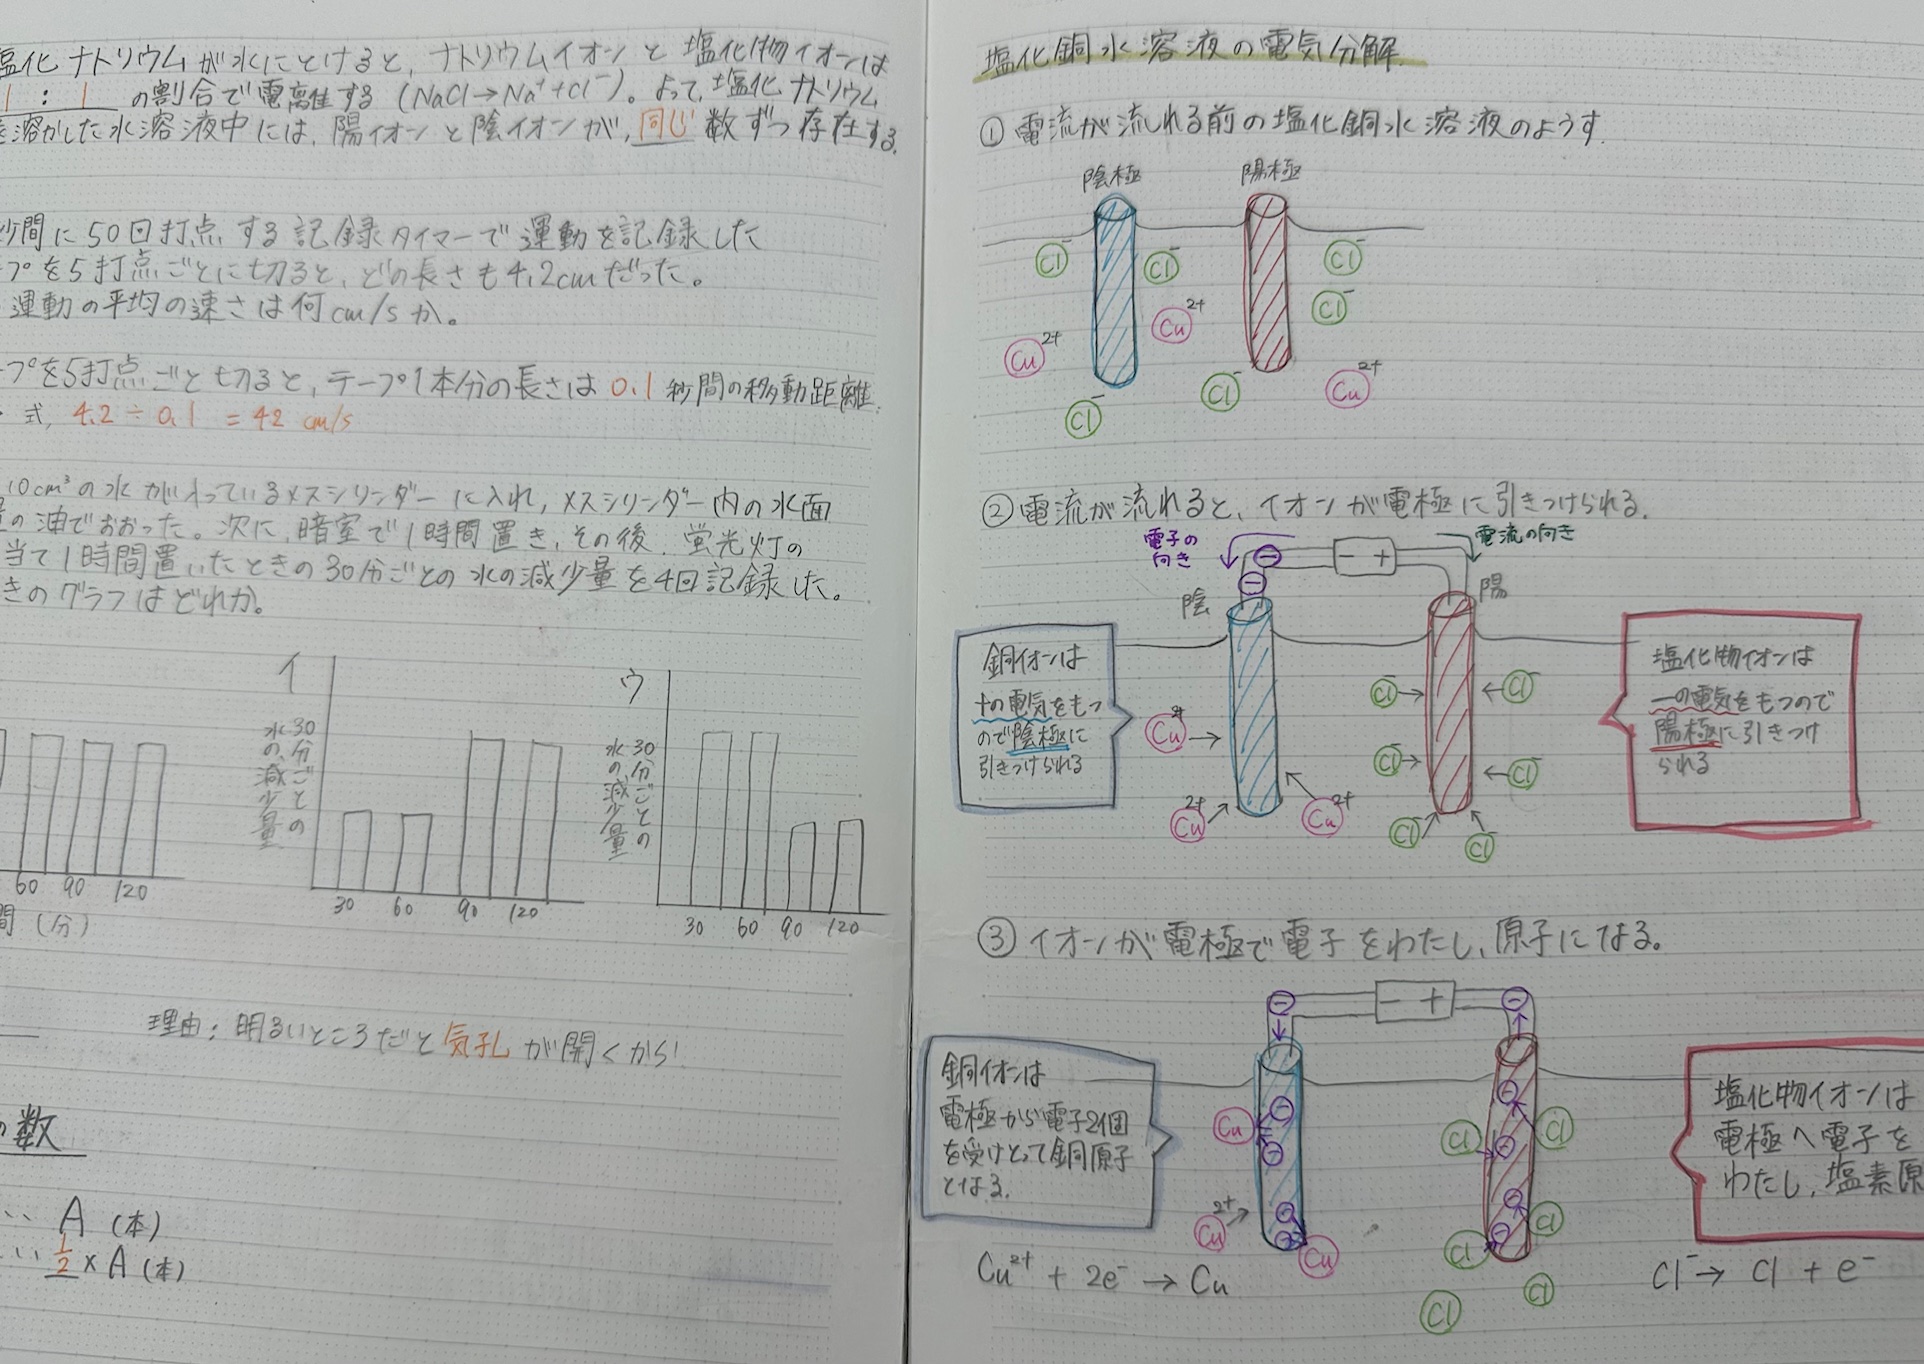 塩化ナトリウムが水にとけると、ナトリウムイオンと塩化物イオンは
1 : 1 の割合で電離する (NaCl→Na⁺+Cl⁻)。よって、塩化ナトリウム
溶かした水溶液中には、陽イオンと陰イオンが、同じ数ずつ存在する。
秒間に50回打点する記録タイマーで運動を記録した
プを5打点ごとに切ると、どの長さも4.2cmだった。
運動の平均の速さは何cm/sか。
プを5打点ごと切ると、テープ1本分の長さは0.1秒間の移動距離.
式, 4.2÷0.1 = 42 cm/s
10cm³の水が入っているメスシリンダーに入れ,メスシリンダー内の水面
の油でおおった。次に,暗室で1時間置き,その後.蛍光灯の
当て1時間置いたときの30分ごとの水の減少量を4回記録した。
きのグラフはどれか。
60 90 120
間 (分)
イ
30分ごとの
水の減少量
30 60 90 120
ウ
30分ごとの
水の減少量
30 60 90 120
理由:明るいところだと気孔が開くから
の数
A (本)
1/2 × A (本)
塩化銅水溶液の電気分解
① 電流が流れる前の塩化銅水溶液のようす
陰極 陽極
Cl⁻ Cl⁻ Cl⁻
Cu²⁺ Cl⁻
Cu²⁺
Cl⁻ Cu²⁺
Cl⁻
② 電流が流れると、イオンが電極に引きつけられる.
電子の
向き
⊖ ⊖
− +
電流の向き
陰 陽
銅イオンは
+の電気をもつ
ので陰極に
引きつけられる
Cu²⁺
Cu²⁺ Cu²⁺
Cl⁻ Cl⁻
Cl⁻ Cl⁻
Cl⁻ Cl⁻
塩化物イオンは
−の電気をもつので
陽極に引きつけ
られる
③ イオンが電極で電子をわたし、原子になる。
⊖ − + ⊖
銅イオンは
電極から電子2個
を受けとって銅原子
となる.
Cu ⊖ ⊖
Cu²⁺ ⊖ ⊖ Cu
Cl ⊖ ⊖ Cl
Cl ⊖ ⊖ Cl
Cl Cl
塩化物イオンは
電極へ電子を
わたし、塩素原
Cu²⁺ + 2e⁻ → Cu
Cl⁻→ Cl + e⁻